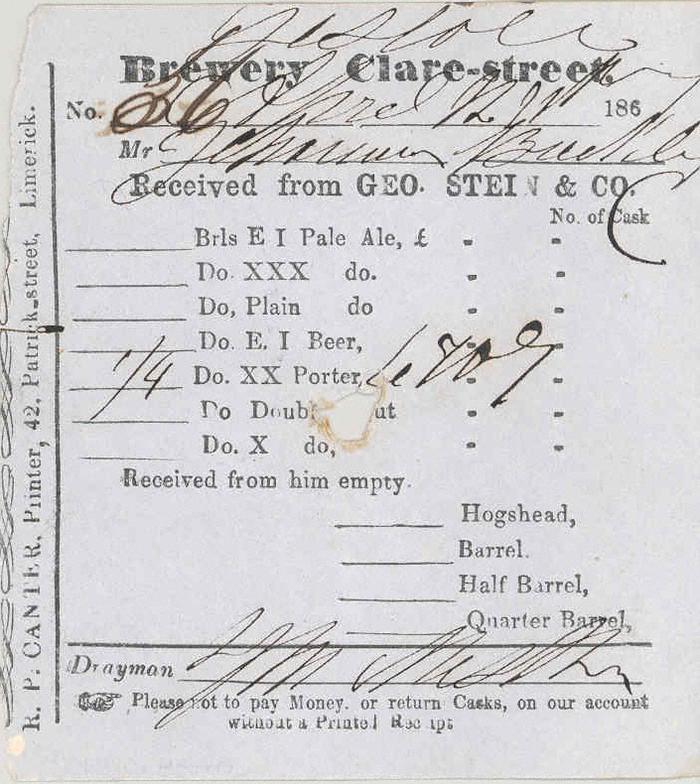 Brewery Clare-street.
No. 36 April 12 186
Mr Buckley
Received from GEO. STEIN & CO.
No. of Cask
Brls E I Pale Ale, £ - -
Do. XXX do. - -
Do, Plain do - -
Do. E. I Beer, - -
1/4 Do. XX Porter, - -
Do Doub ut - -
Do. X do, - -
Received from him empty.
Hogshead,
Barrel.
Half Barrel,
Quarter Barrel,
Drayman
☞ Please not to pay Money. or return Casks, on our account
without a Printed Receipt
R. P. CANTER, Printer, 42, Patrick-street, Limerick.